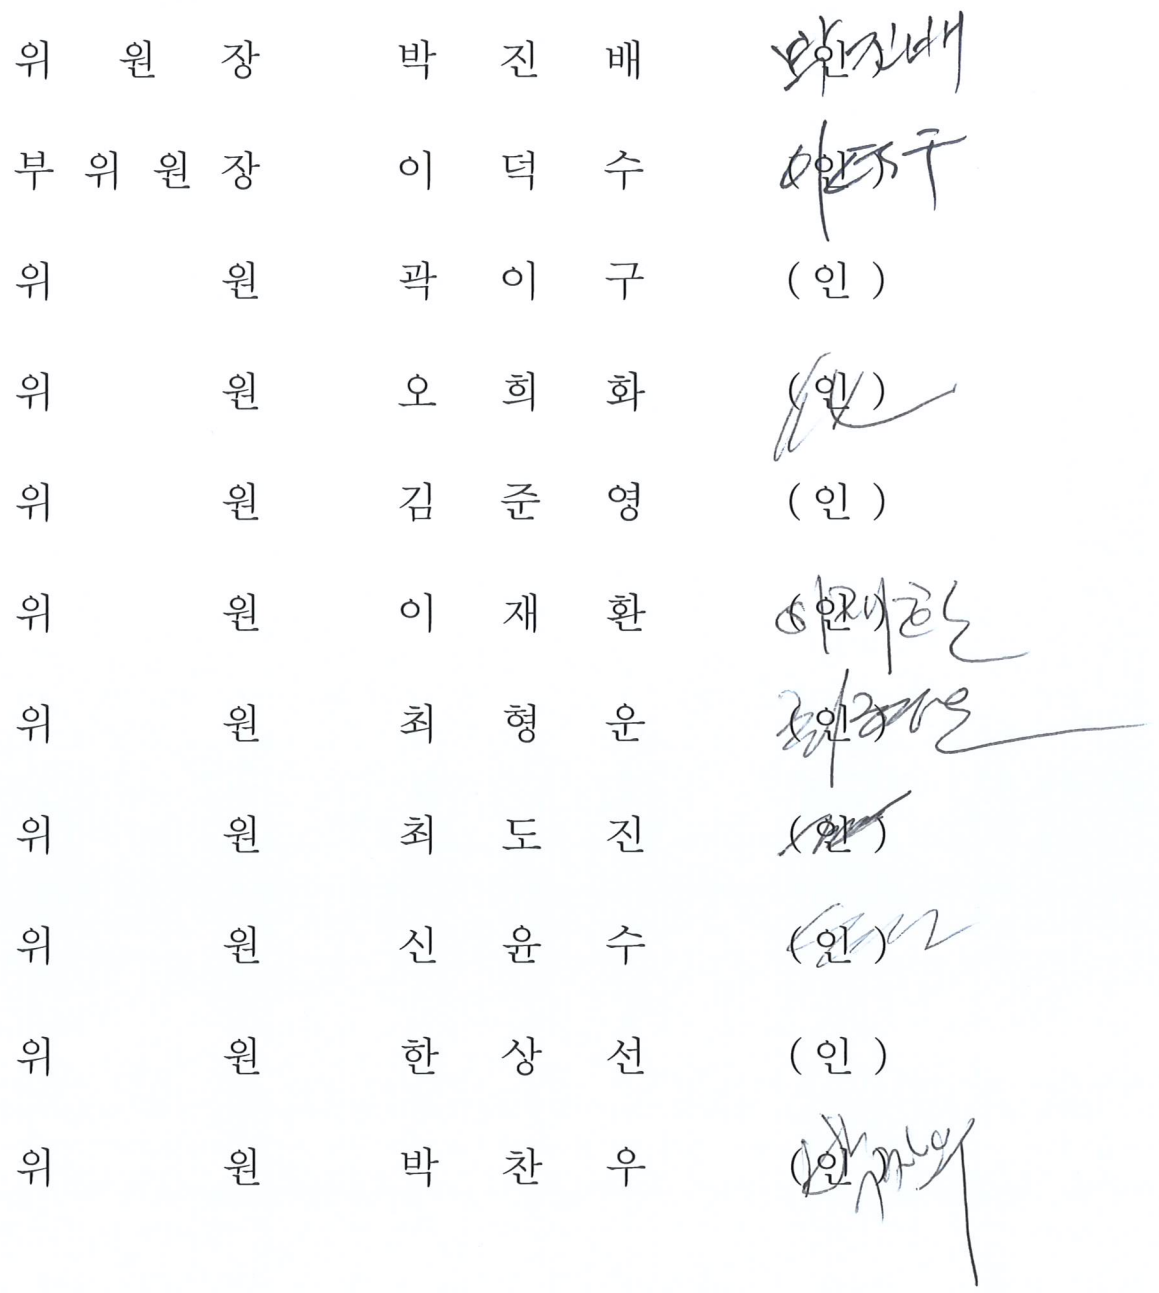 위 원 장 박 진 배 (인) 박진배
부 위 원 장 이 덕 수 (인) 이덕수
위 원 곽 이 구 (인)
위 원 오 희 화 (인)
위 원 김 준 영 (인)
위 원 이 재 환 (인) 이재환
위 원 최 형 운 (인)
위 원 최 도 진 (인)
위 원 신 윤 수 (인)
위 원 한 상 선 (인)
위 원 박 찬 우 (인)